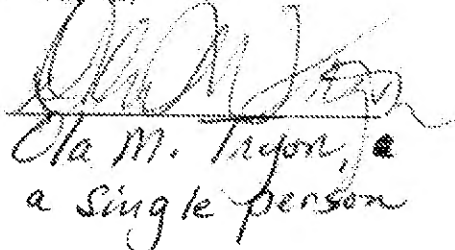 Ola M. Tryon
Ola M. Tryon, a
a single person